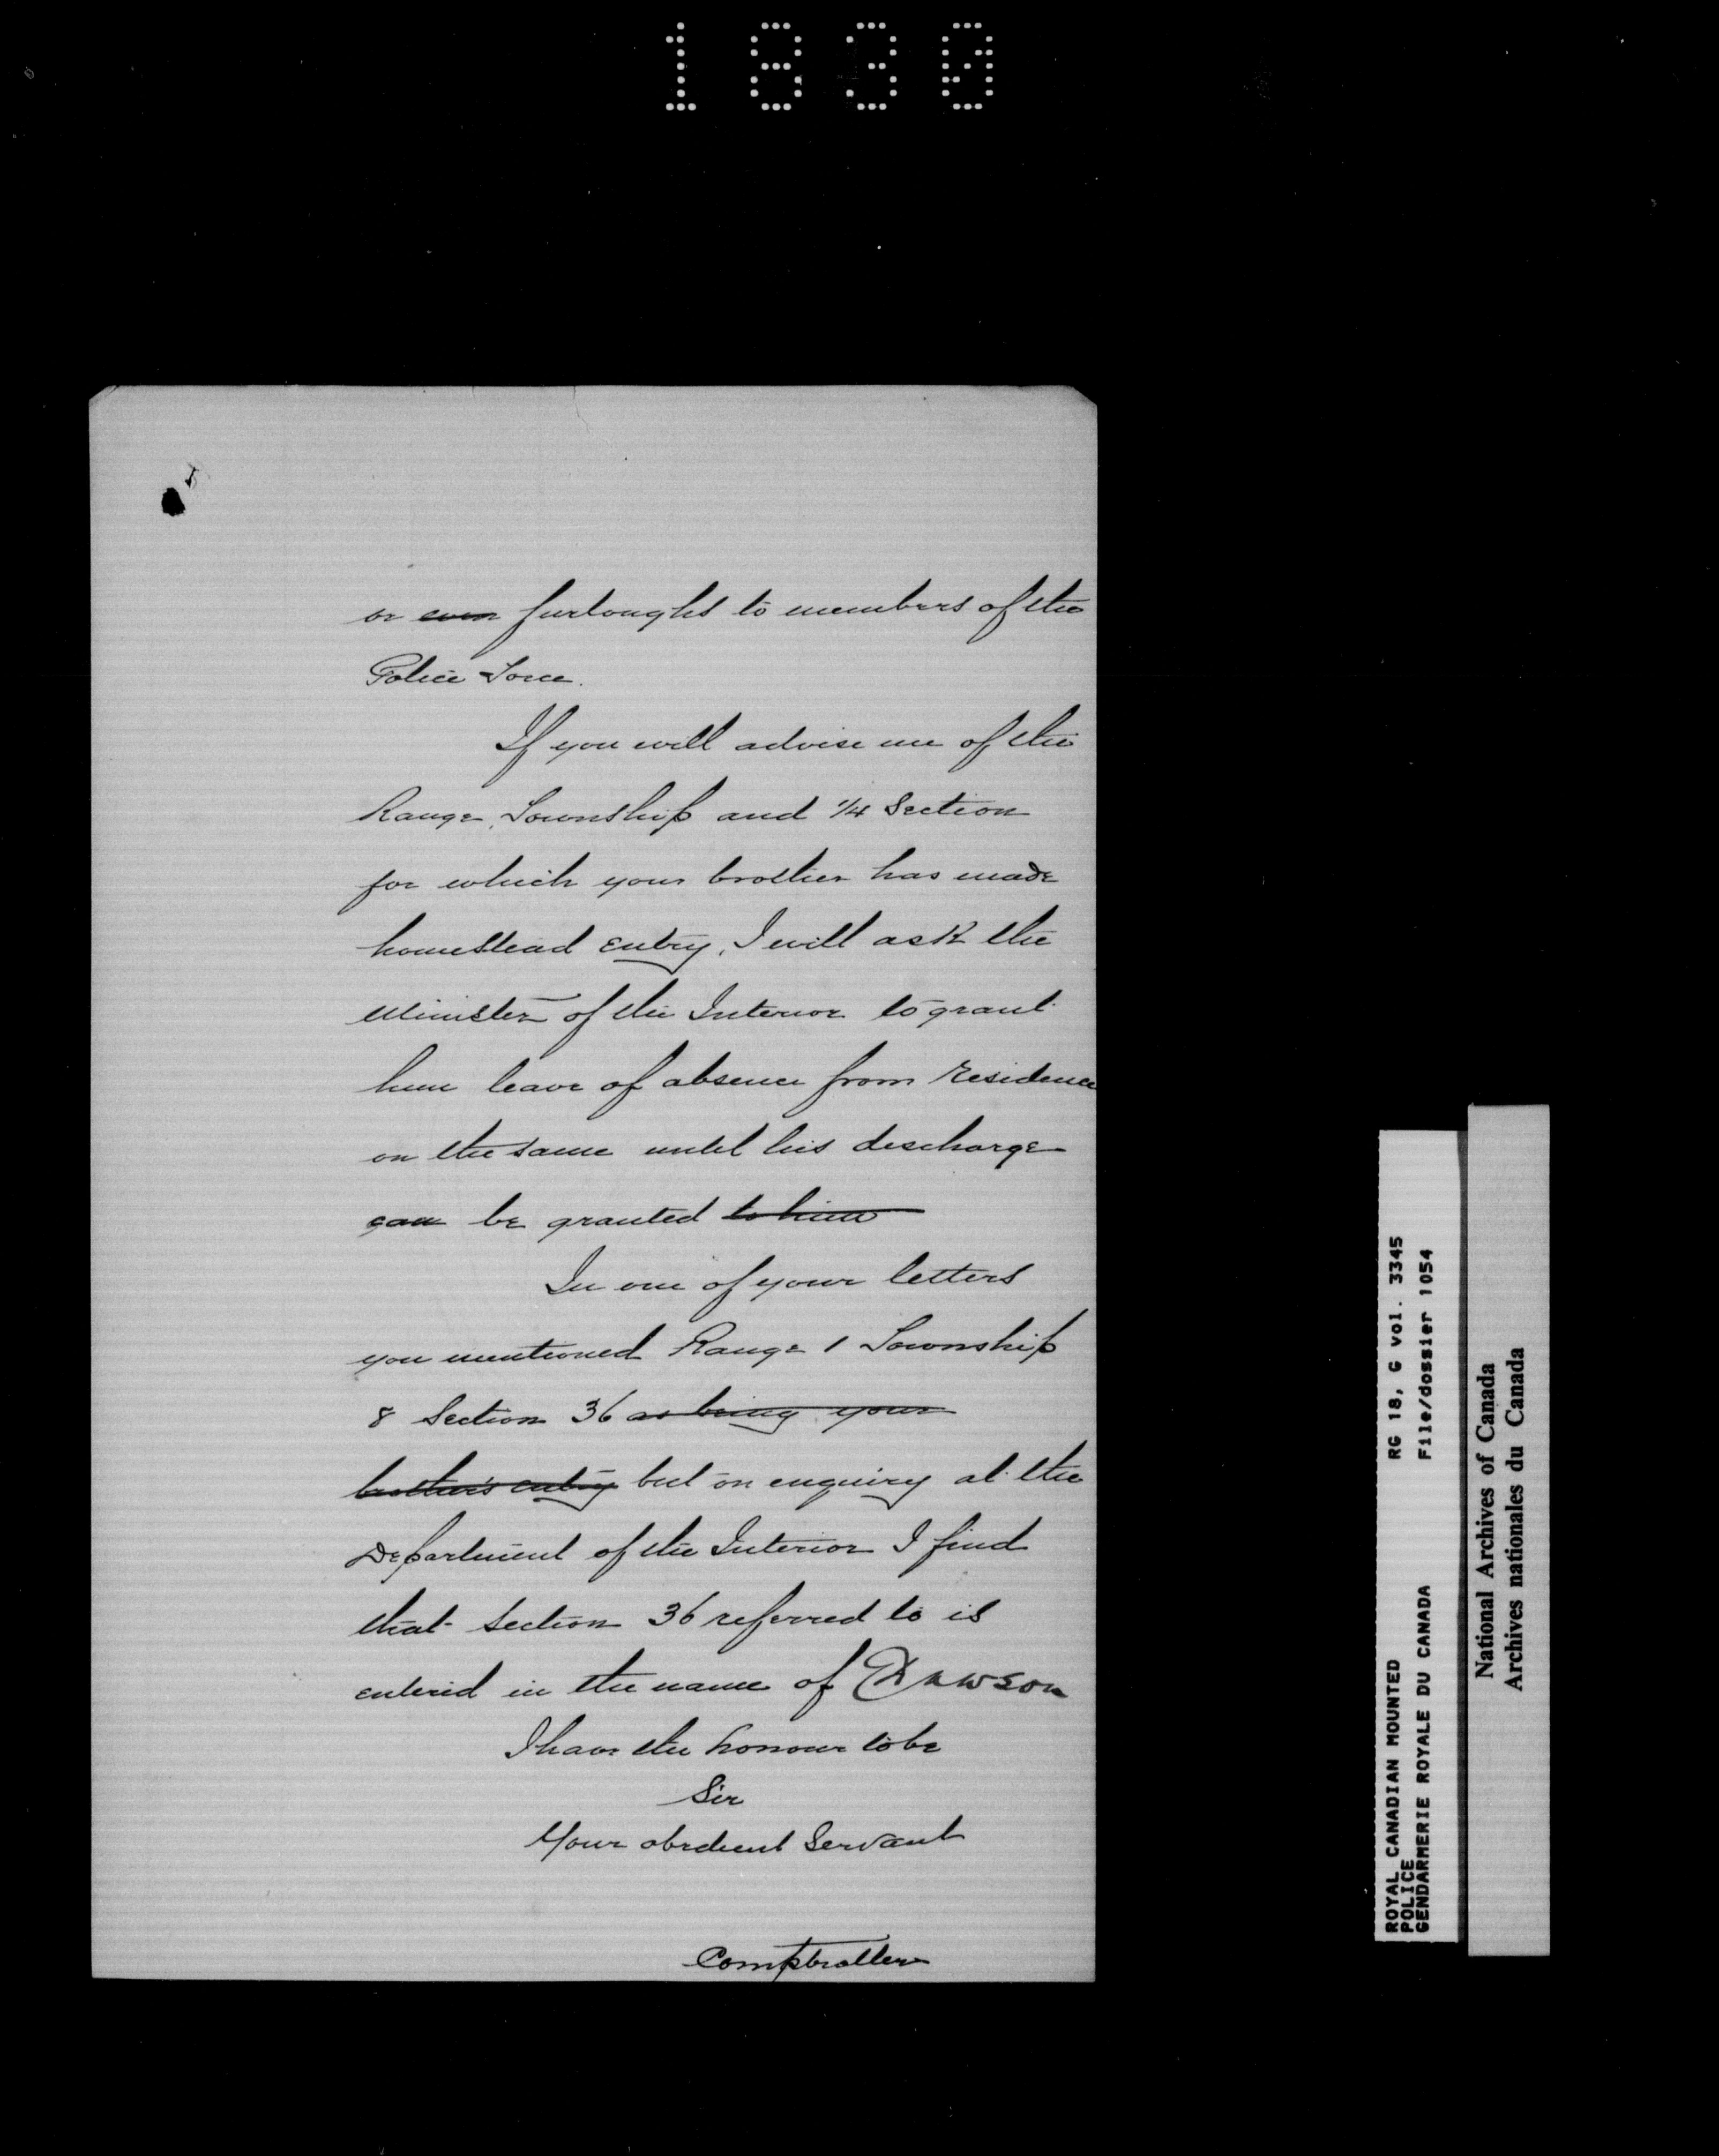 1830
or even furloughs to members of the
Police Force.
If you will advise me of the
Range, Township and 1/4 Section
for which your brother has made
homestead entry, I will ask the
Minister of the Interior to grant
him leave of absence from residence
on the same until his discharge
can be granted to him
In one of your letters
you mentioned Range 1 Township
8 Section 36 as being your
brother's entry but on enquiry at the
Department of the Interior I find
that section 36 referred to is
entered in the name of Dawson
I have the honour to be
Sir
Your obedient Servant
Comptroller
ROYAL CANADIAN MOUNTED RG 18, G vol. 3345
POLICE
GENDARMERIE ROYALE DU CANADA File/dossier 1054
National Archives of Canada
Archives nationales du Canada